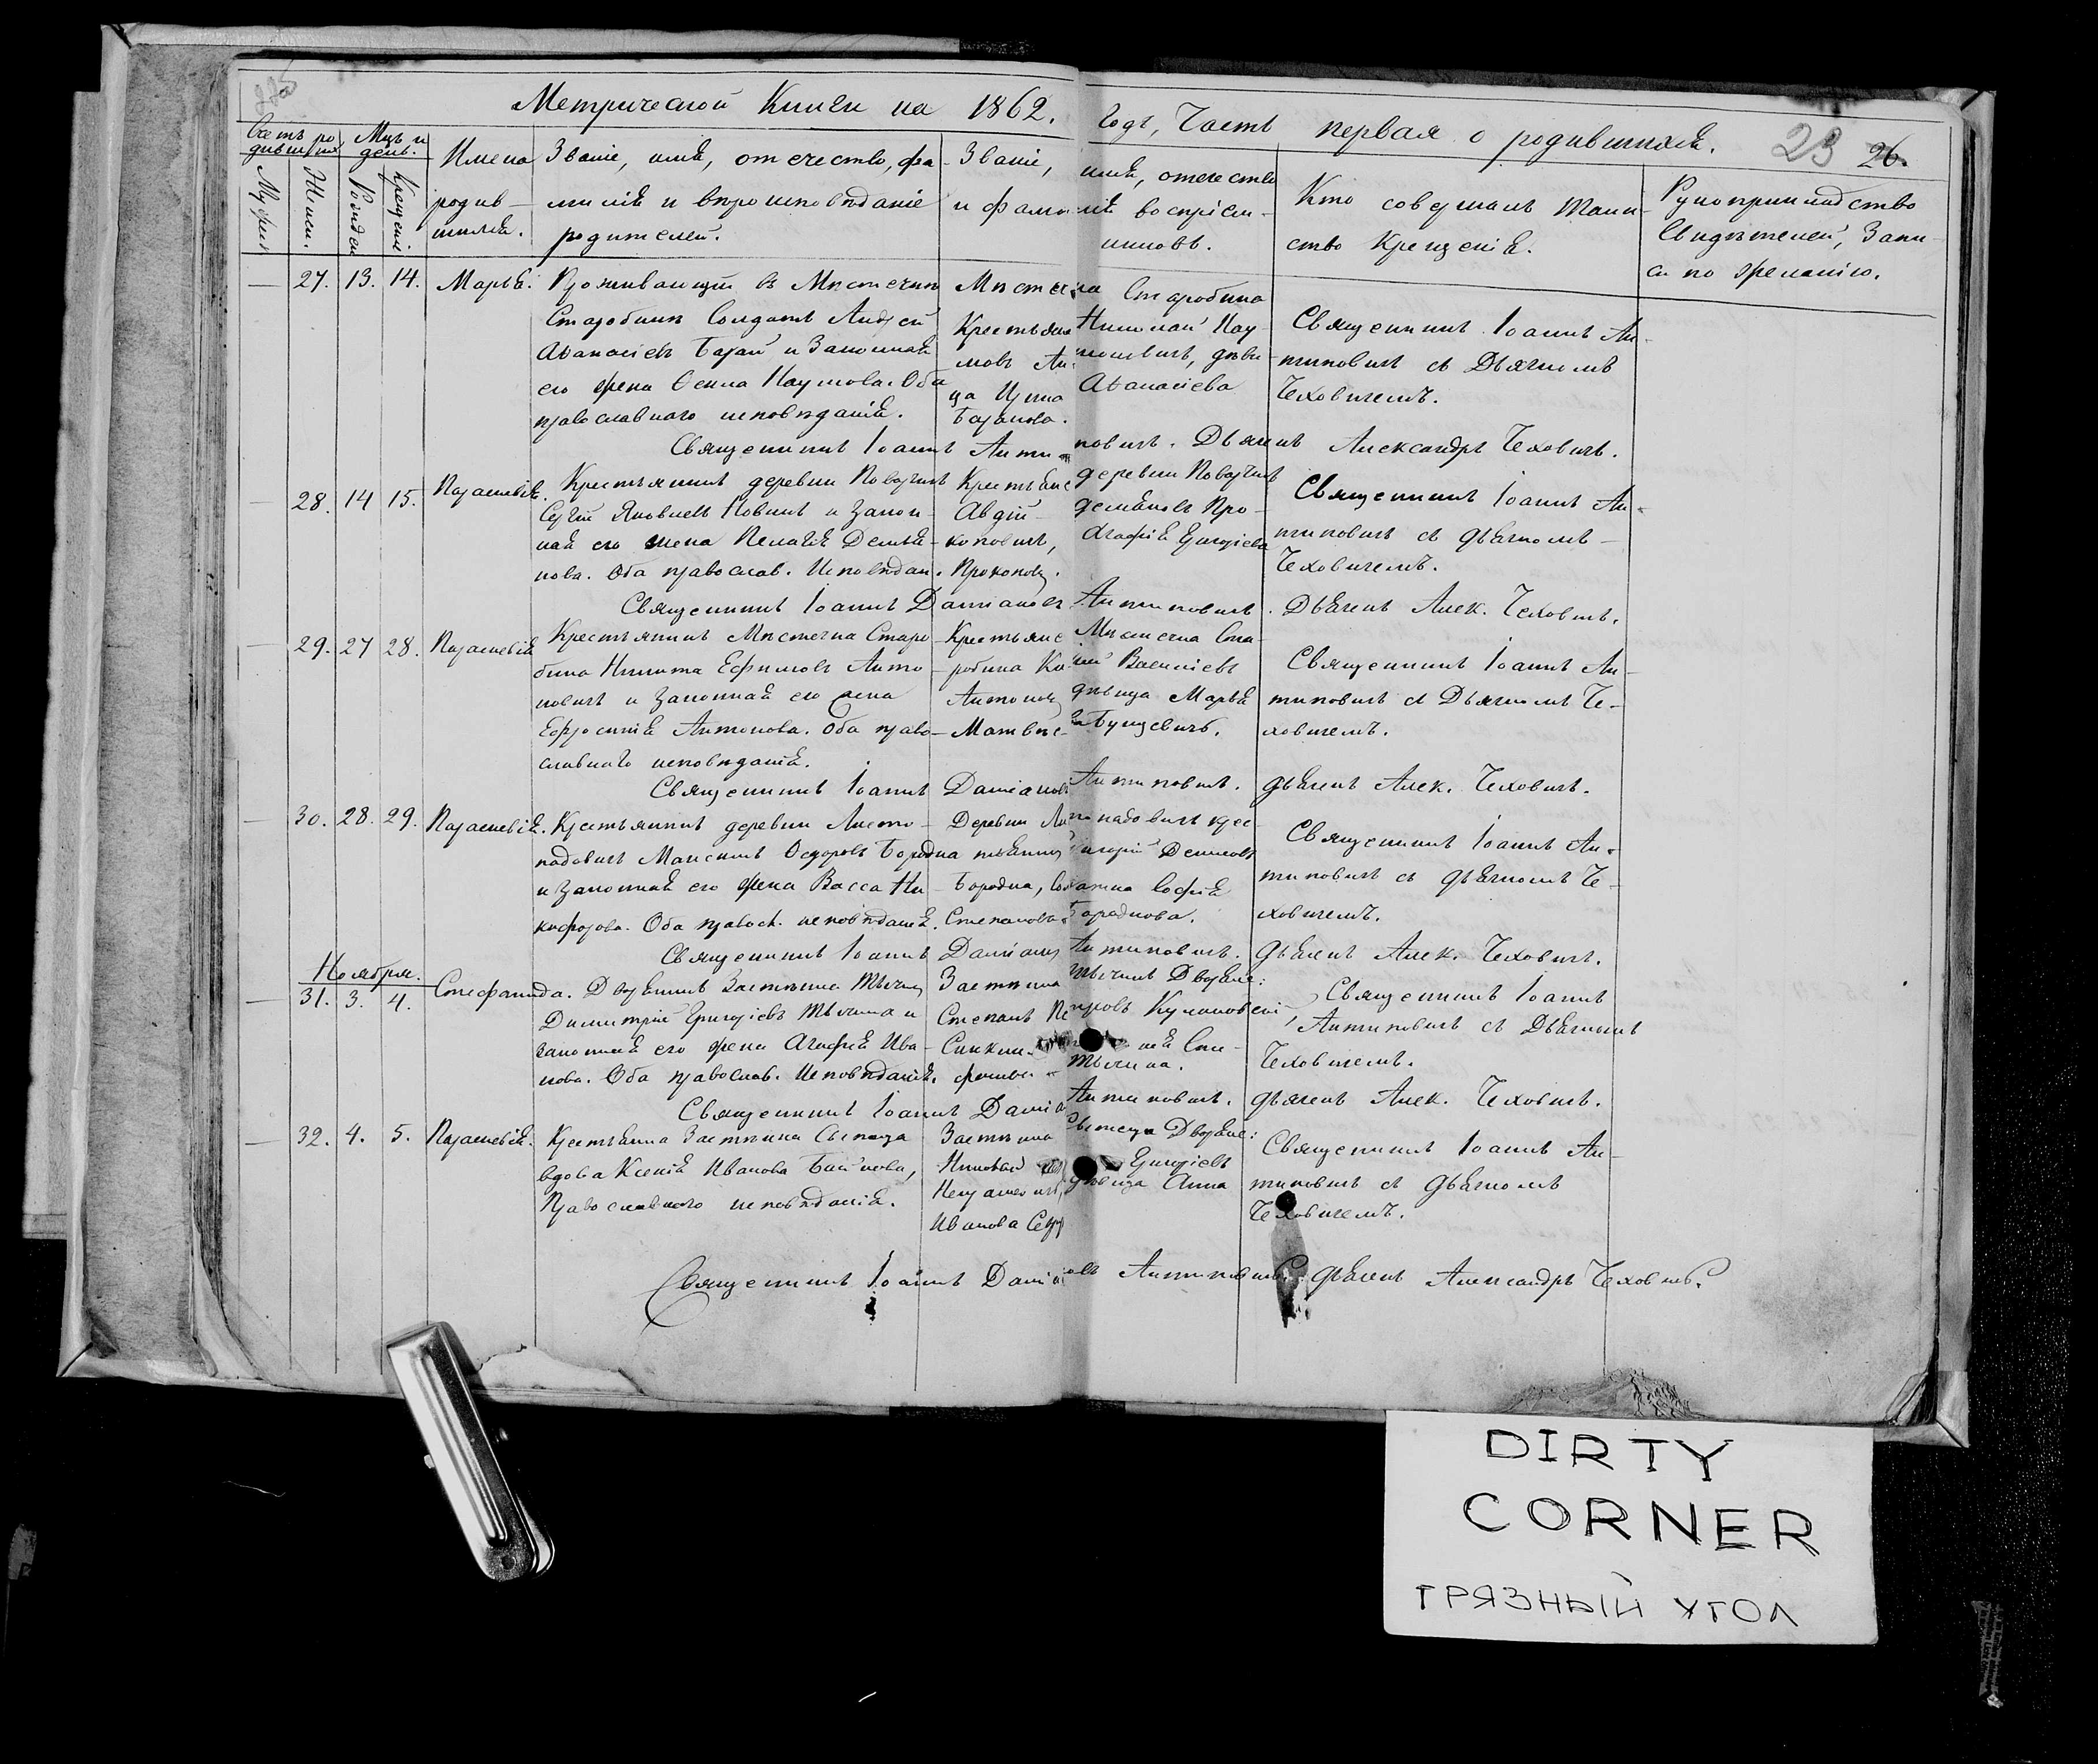 Метрической Книги на 1862.
Годъ, Часть первая о родившихся.
23 26.
Счетъ родившихся Мцъ и день.
Мужеск Женск. Рожден Крещенія
Имена родившихся.
Званіе, имя, отечество, фамилія и вѣроисповѣданіе родителей.
Званіе, имя, отечество и фамилія воспріемниковъ.
Кто совершалъ таинство Крещенія.
Рукоприкладство Свидѣтелей, записи по желанію.
— 27. 13. 14. Марья.
Проживающій въ Мѣстечкѣ
Старобинѣ Солдатъ Андрей
Аѳанасіевъ Базанъ и Законная
его жена Осина Наумова. Оба
православнаго исповѣданія.
Мѣстечка Старобина
Николай Нау-
девица
Аѳанасіева
Священникъ Іоаннъ Ан-
типовичъ съ Дьячкомъ
Чеховичемъ.
Священникъ Іоаннъ Антиповичъ. Дьячекъ Александръ Чеховичъ.
— 28. 14 15. Параскевія.
Крестьянинъ деревни
Сергій Яковлевъ Новикъ и закон-
ная его жена Пелагія Демья-
нова. Оба православ. Исповѣдан.
Крестьяне деревни
Авдій Демьяновъ Про-
коповичъ, Агафія Григорьева
Прокопов.
Священникъ Іоаннъ Ан-
типовичъ съ дьячкомъ
Чеховичемъ.
Священникъ Іоаннъ Даміановъ Антиповичъ. Дьячекъ Алек. Чеховичъ.
— 29. 27 28. Параскевія
Крестьянинъ Мѣстечка Старо-
бина Никита Ефимовъ Анто-
новичъ и законная его жена
Ефросинія Антонова. Оба право-
славнаго исповѣданія.
Крестьяне Мѣстечка Ста-
робина Василіевъ
девица Марья
Матвѣе
Священникъ Іоаннъ Ан-
типовичъ съ Дьячкомъ Че-
ховичемъ.
Священникъ Іоаннъ Даміановъ Антиповичъ. Дьячекъ Алек. Чеховичъ.
— 30. 28. 29. Параскевія.
Крестьянинъ деревни Листо-
падовичъ Максимъ Ѳедоровъ Бородка
и законная его жена Васса Ни-
кифорова. Оба правосл. исповѣданія.
Деревни Листопадовичъ крес-
тьянинъ Григорій Денисовъ
Бородка, Солдатка Софія
Степанова Бородкова.
Священникъ Іоаннъ Ан-
типовичъ съ дьячкомъ Че-
ховичемъ.
Священникъ Іоаннъ Даміанов Антиповичъ. дьячекъ Алек. Чеховичъ.
Ноября.
— 31. 3. 4. Стефанида.
Дворянинъ Застѣнка Тычин
Димитрій Григорьевъ Тычина и
законная его жена Агафія Ива-
нова. Оба православ. Исповѣданія.
Застѣнка Тычинъ Дворяне:
Степанъ Петровъ
Тычина.
Священникъ Іоаннъ
Антиповичъ съ Дьячкомъ
Чеховичемъ.
Священникъ Іоаннъ Даміа Антиповичъ. дьячекъ Алек. Чеховичъ.
— 32. 4. 5. Параскевія.
Крестьянка Застѣнка
вдова Ксенія Иванова
Православнаго исповѣданія.
Застѣнка Дворяне:
Григорьевъ
девица Анна
Иванова
Священникъ Іоаннъ Ан-
типовичъ съ дьячкомъ
Чеховичемъ.
Священникъ Іоаннъ Даміановъ Антиповичъ. дьячекъ Александръ Чеховичъ.
DIRTY
CORNER
ГРЯЗНЫЙ УГОЛ